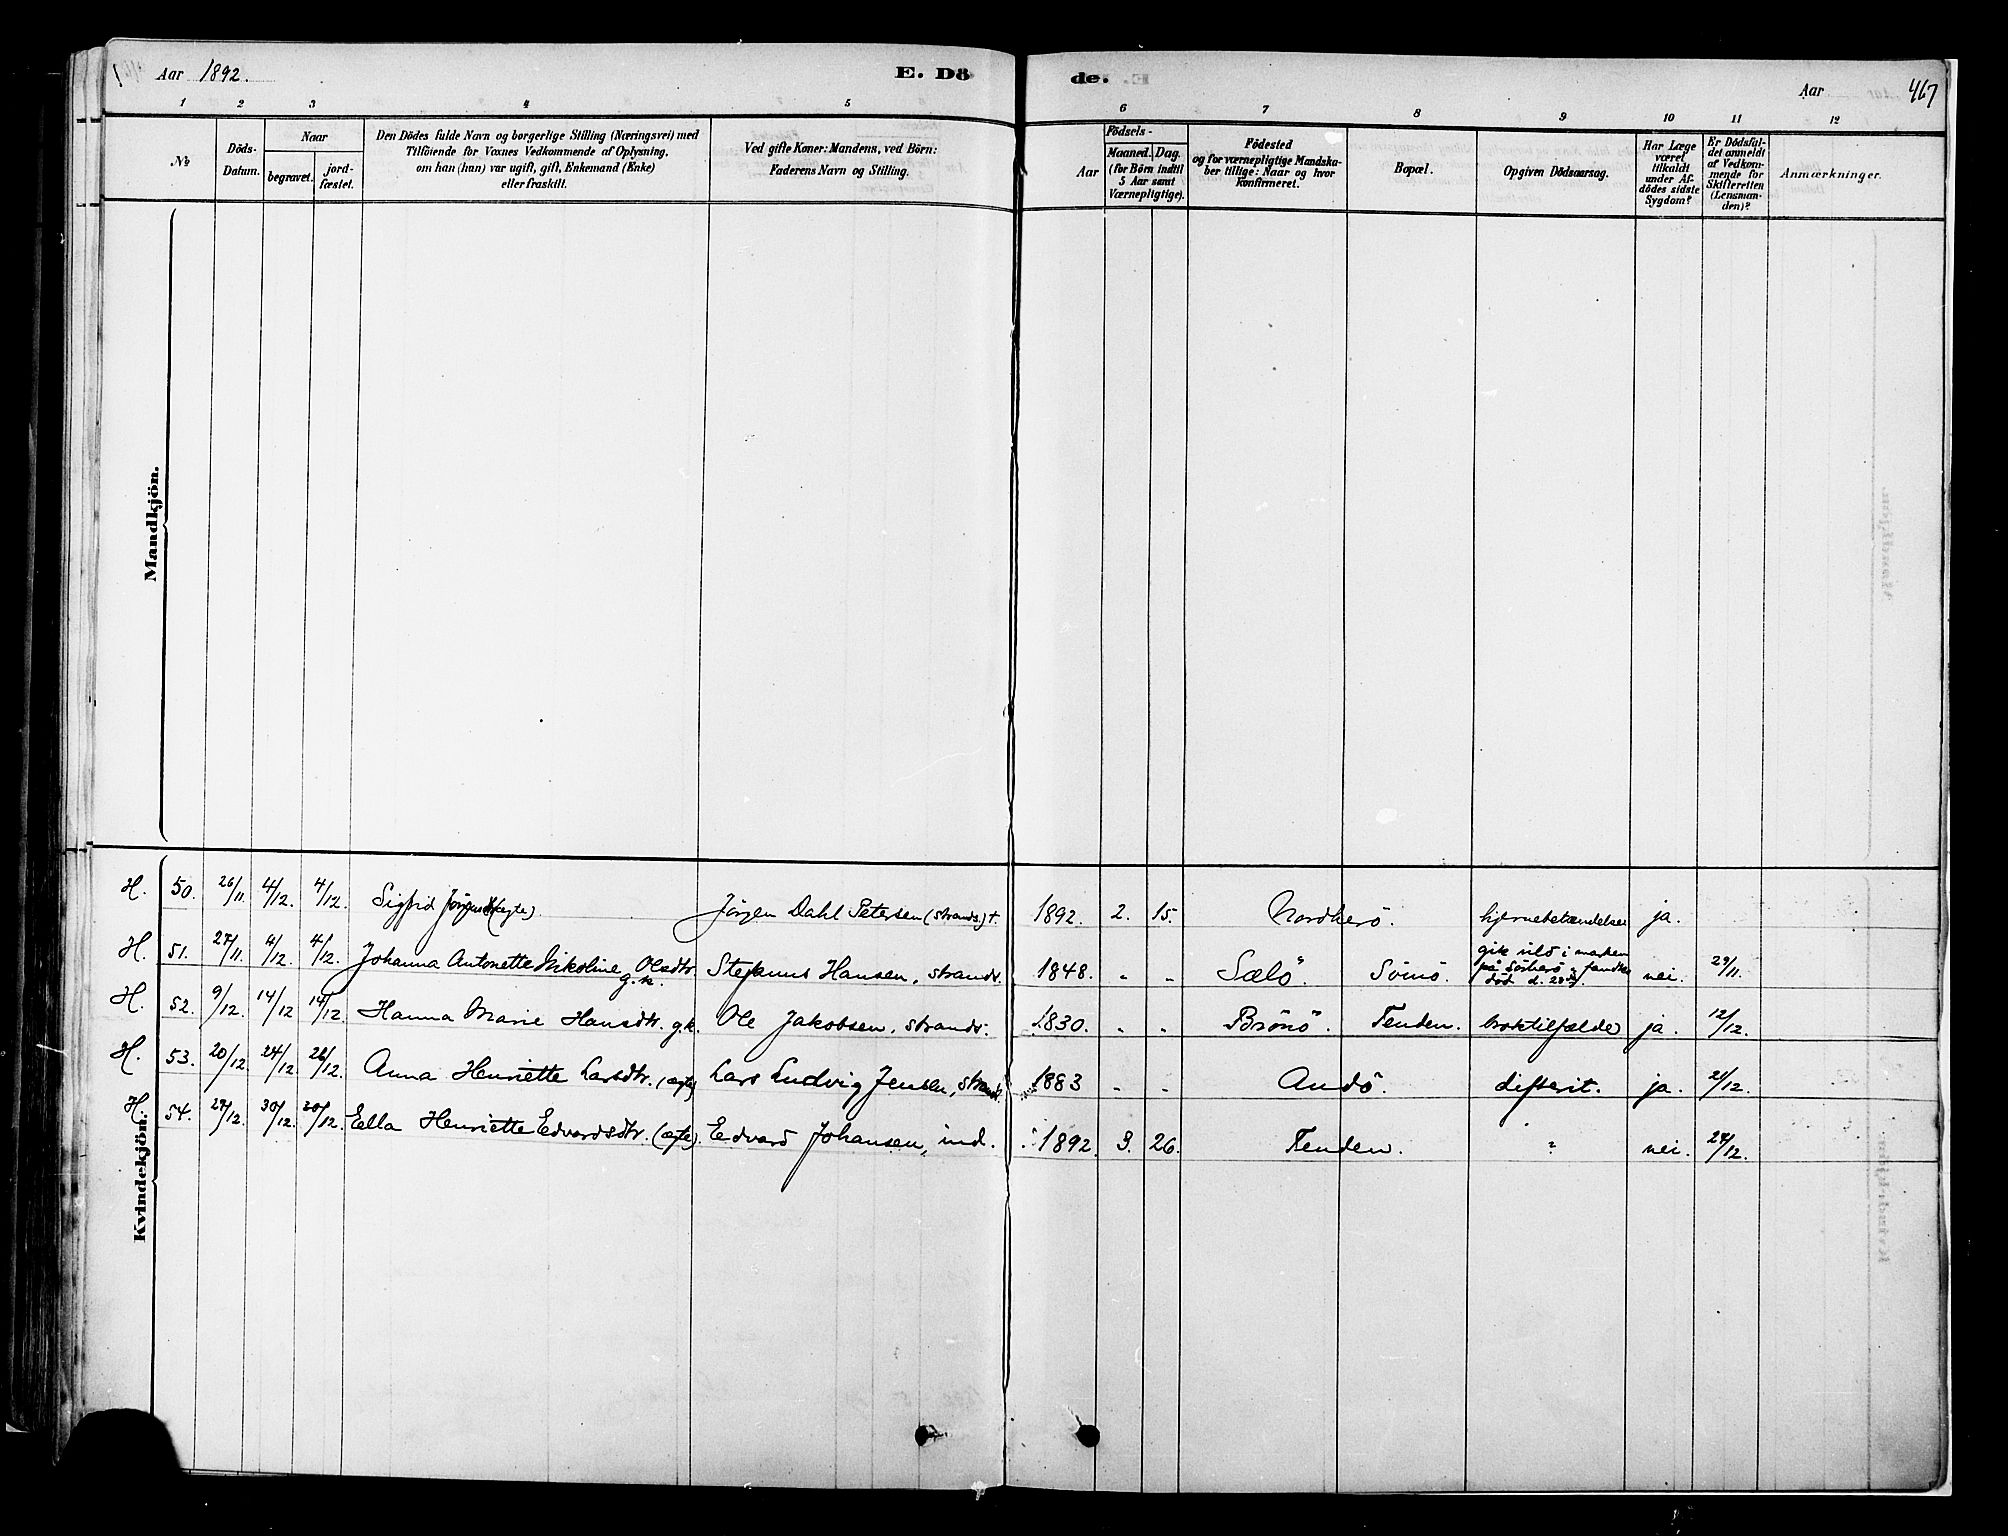 Aar 1892.
E. Dö
de.
Aar
467
1 2 3 4 5 6 7 8 9 10 11 12
№
Döds-
Datum.
Naar
begravet.
jord-
fæstet.
Den Dödes fulde Navn og borgerlige Stilling (Næringsvei) med
Tilföiende for Voxnes Vedkommende af Oplysning,
om han (hun) var ugift, gift, Enkemand (Enke)
eller fraskilt.
Ved gifte Koner: Mandens, ved Börn:
Faderens Navn og Stilling.
Födsels-
Aar
Maaned.
Dag.
(for Börn indtil
5 Aar samt
Værnepligtige).
Födested
og for værnepligtige Mandska-
ber tillige: Naar og hvor
konfirmeret.
Bopæl.
Opgiven Dödsaarsag.
Har Læge
været
tilkaldt
under Af-
dödes sidste
Sygdom?
Er Dödsfal-
det anmeldt
af Vedkom-
mende for
Skifteretten
(Lensman-
den)?
Anmærkninger.
Mandkjön.
Kvindekjön.
H. 50. 26/11. 4/12. 4/12. Sigfrid Jörgensd. (ægte) Jörgen Dahl Petersen (strands.) †. 1892. 2. 15. Nordherö. hjernebetændelse ja.
H. 51. 27/11. 4/12. 4/12. Johanna Antonette Nikoline Olsdtr. g.k. Stefanus Hansen, strands. 1848. " " Sælö. Sömö. gik vild i marken
på Sörherö, fandtes
död d. 28de. nei. 29/11.
H. 52. 9/12. 14/12 14/12. Hanna Marie Hansdtr. g.k. Ole Jakobsen, strands. 1830. " " Brönö. Tenden. broktilfælde ja. 12/12.
H. 53. 20/12. 24/12. 26/12. Anna Henriette Larsdtr. (ægte) Lars Ludvig Jensen, strands. 1883 " " Andö. difterit. ja. 21/12.
H. 54. 27/12. 30/12. 30/12. Ella Henriette Edvardsdtr. (ægte). Edvard Johansen, ind. 1892. 3. 26. Tenden. ? nei. 27/12.